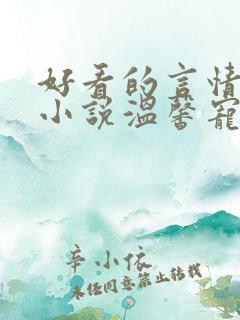 好看的言情
小说温馨宠
辛小依
未经同意禁止转载